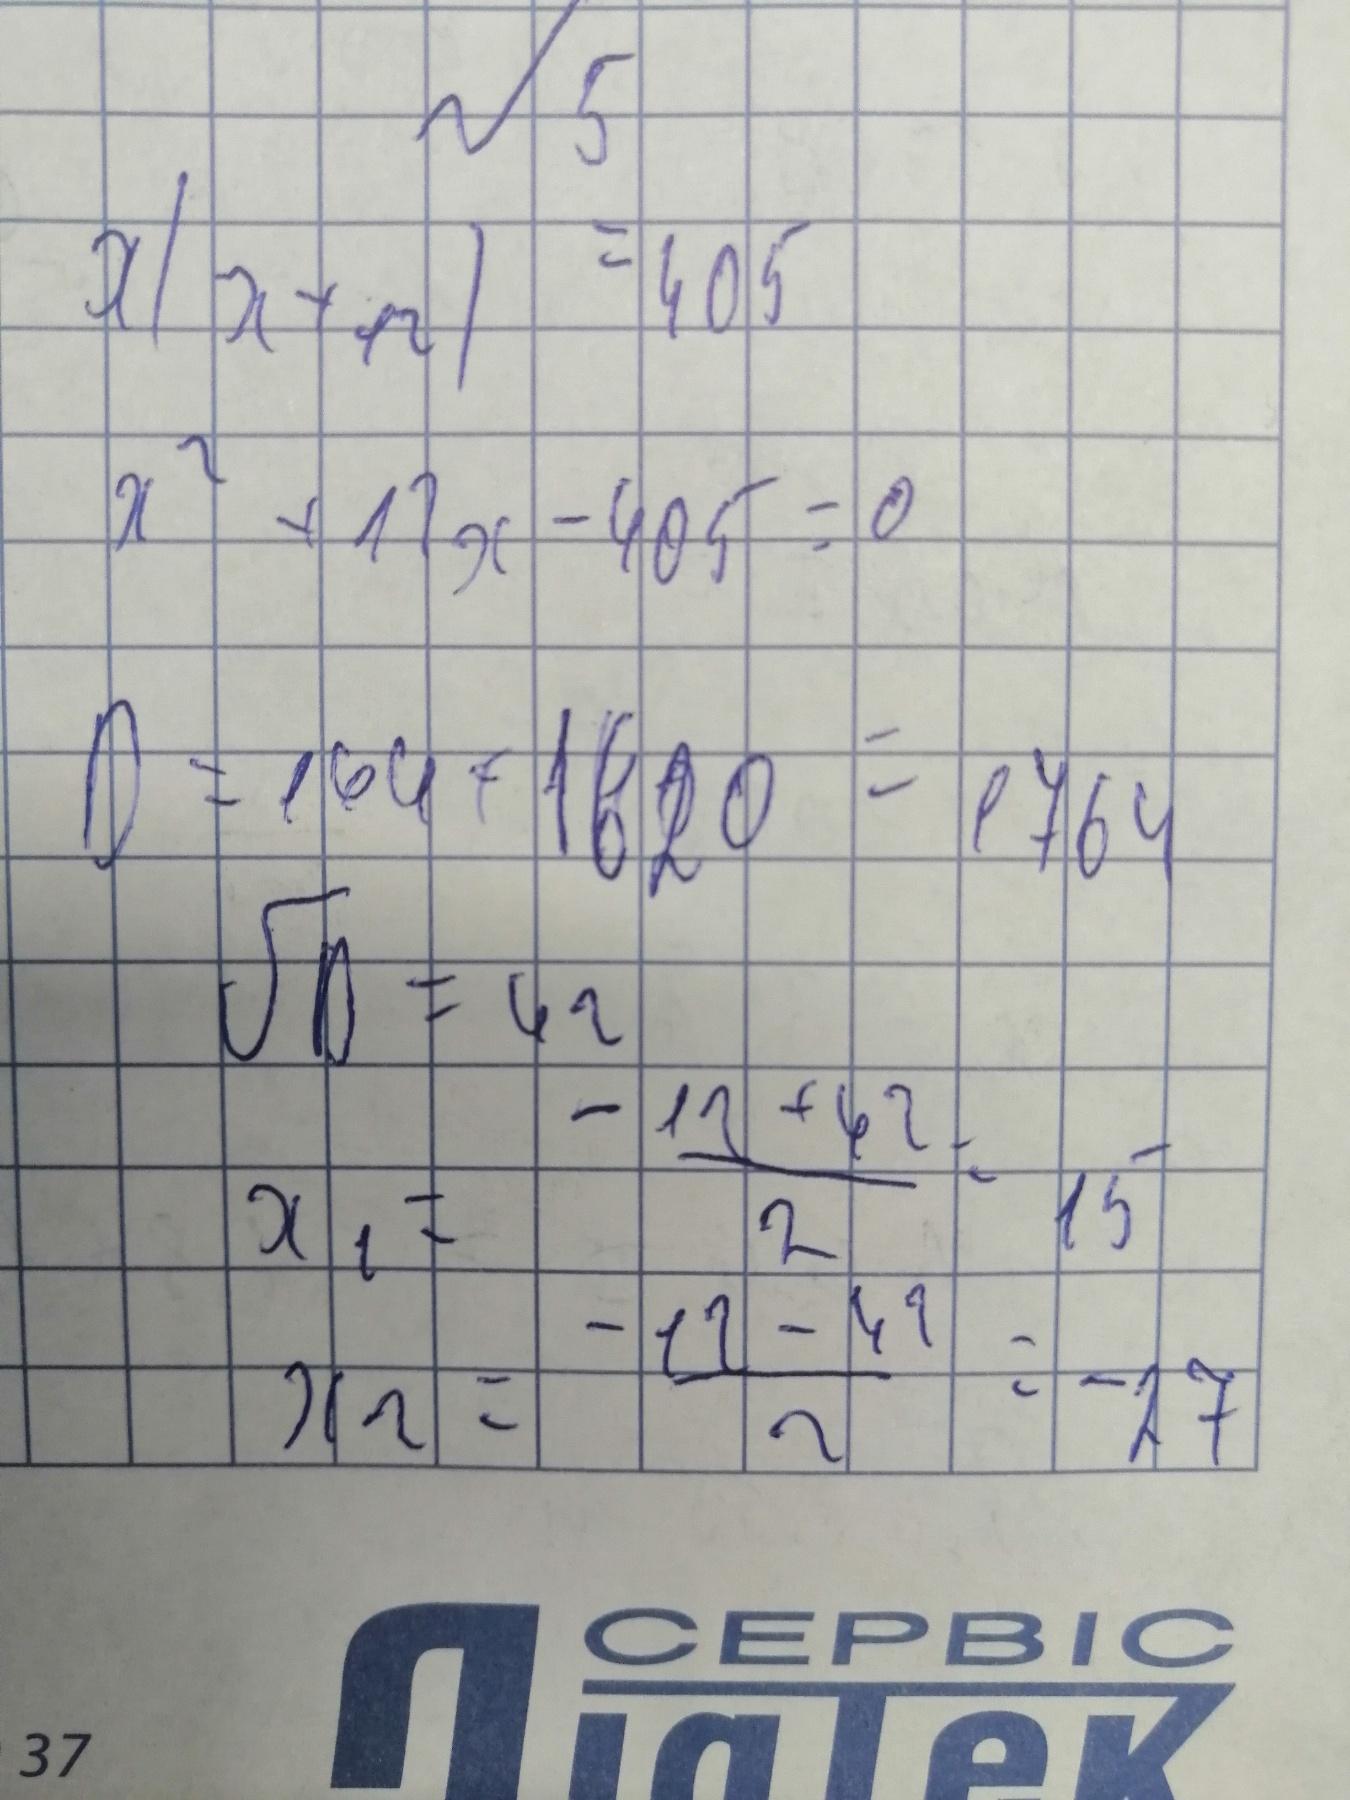 № 5
x(x+12) = 405
x² + 12x - 405 = 0
D = 144 + 1620 = 1764
√D = 42
x₁ = (-12 + 42)/2 = 15
x₂ = (-12 - 42)/2 = -27
СЕРВІС
ЛіаТек
37